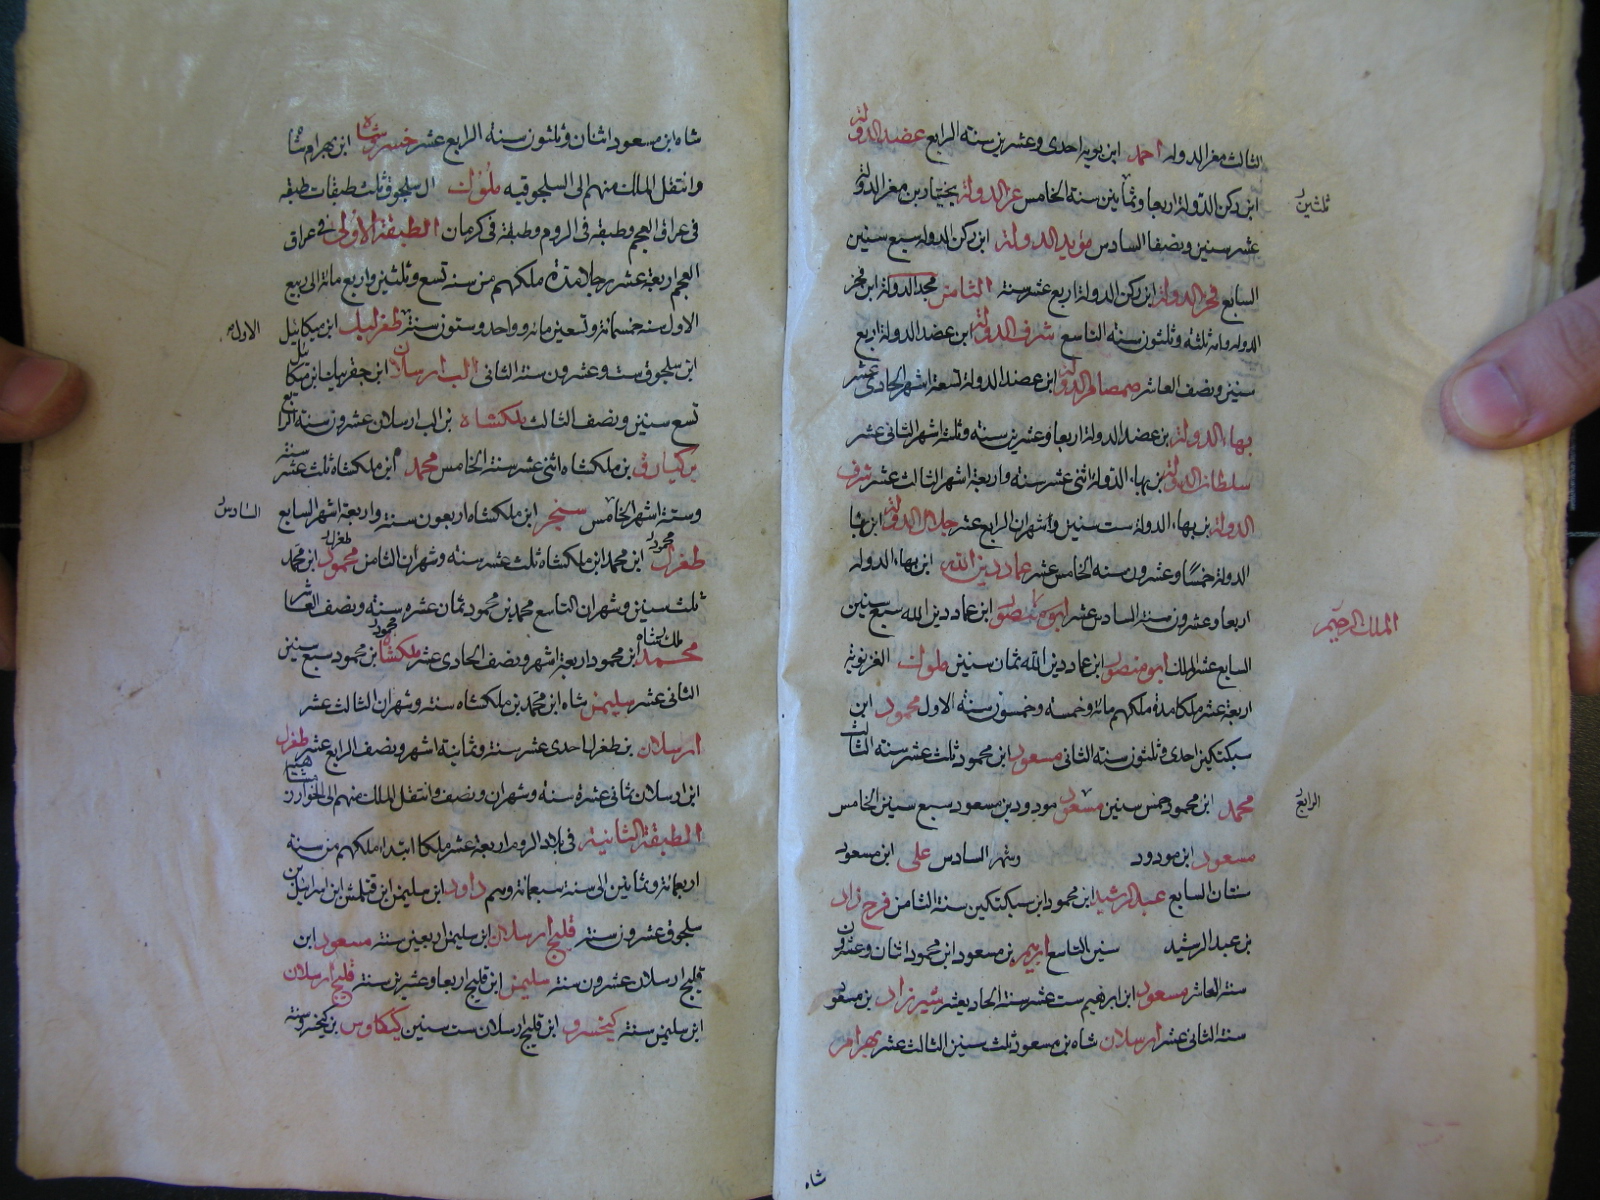 الثالث معز الدوله احمد ابن بويه احدى وعشرين سنه الرابع عضد الدولة
ابن ركن الدولة اربعا وثمانين سنة الخامس عز الدولة بختيار بن معز الدولة
ثلثين
عشر سنين ونصفا السادس مؤيد الدولة ابن ركن الدوله سبع سنين
السابع فخر الدولة ابن ركن الدولة اربع عشر سنة الثامن مجد الدولة ابن فخر
الدوله وله ثلثة وثلثون سنة التاسع شرف الدولة ابن عضد الدولة اربع
سنين ونصف العاشر صمصام الدولة ابن عضد الدولة تسعة اشهر الحادى عشر
بهاء الدولة بن عضد الدولة اربعا وعشرين سنه وثلث اشهر الثانى عشر
سلطان الدولة بن بهاء الدولة اثنى عشر سنة واربعة اشهر الثالث عشر شرف
الدولة بن بهاء الدولة ست سنين وشهران الرابع عشر جلال الدولة ابن بها
الدولة خمسًا وعشرون سنه الخامس عشر عماد دين الله ابن بهاء الدوله
اربعا وعشرون سنة السادس عشر ابو منصور ابن عماد دين الله سبع سنين
الملك الرحيم
السابع عشر الملك ابو منصور ابن عماد دين الله ثمان سنين ملوك الغزنوية
اربعة عشر ملكا مدة ملكهم مائة وخمسه وخمسون سنة الاول محمود ابن
سبكتكين احدى وثلثون سنه الثانى مسعود ابن محمود ثلث عشر سنه الثالث
محمد ابن محمود خمس سنين مسعود مودود بن مسعود سبع سنين الخامس
الرابع
مسعود ابن مودود وشهر السادس على ابن مسعود
سنتان السابع عبد الرشيد ابن محمود ابن سبكتكين سنة الثامن فرح زاد
بن عبد الرشيد سنين التاسع ابرهيم بن مسعود ابن محمود اثنان وعشرون
سنة العاشر مسعود ابن ابرهيم ست عشر سنة الحاديعشر شيرزاد بن مسعود
سنة الثانى عشر ارسلان شاه بن مسعود ثلث سنين الثالث عشر بهرام
شاه
شاه ابن مسعود اثنان وثلثون سنة الرابع عشر خسرو شاه ابن بهرام شاه
وانتقل الملك منهم الى السلجوقيه ملوك ال سلجوق ثلث طبقات طبقه
فى عراق العجم وطبقه فى الروم وطبقة فى كرمان الطبقة الاولى فى عراق
العجم اربعة عشر رجلا مدة ملكهم من سنه تسع وثلثين واربع مائة الى ربيع
الاول سنه خمسمائة وتسعين مائه وواحد وستون سنة طغرلبك ابن ميكائيل
الاول
ابن سلجوق ست وعشرون سنة الثانى الب ارسلان ابن جقربيك ابن ميكائيل
تسع سنين ونصف الثالث ملكشاه بن الب ارسلان عشرون سنة الرابع
بركيارق بن ملكشاه اثنى عشر سنة الخامس محمد ابن ملكشاه ثلث عشر سنة
وستة اشهر الخامس سنجر ابن ملكشاه اربعون سنة واربعة اشهر السابع
السادس
طغرل محمود ابن محمد ابن ملكشاه ثلث عشر سنه وشهران الثامن محمود طغرل ابن محمد
ثلث سنين وشهران التاسع محمد بن محمود ثمان عشره سنه ونصف العاشر
محمد ملكشاه ابن محمود اربعة اشهر ونصف الحادى عشر ملكشاه محمود ابن محمود سبع سنين
الثانى عشر سليمن شاه ابن محمد بن ملكشاه سنة وشهران الثالث عشر
ارسلان بن طغرل احدى عشر سنة وثمانية اشهر ونصف الرابع عشر طغرل
ابن ارسلان ثمانى عشرة سنة وشهران ونصف وانتقل الملك منهم الى الخوارزمشاهيه
الطبقة الثانية فى بلاد الروم اربعة عشر ملكا ابتداء ملكهم من سنة
اربعمائة وثمانين الى سنة سبعمائة وهم داود ابن سليمن ابن قتلمش ابن اسرائيل بن
سلجوق عشرون سنة قليج ارسلان ابن سليمن اربعين سنة مسعود ابن
قليج ارسلان عشرون سنة سليمن ابن قليج اربعا وعشرين سنة قليج ارسلان
ابن سليمن سنة كيخسرو ابن قليج ارسلان ست سنين كيكاوس بن كيخسرو سنة